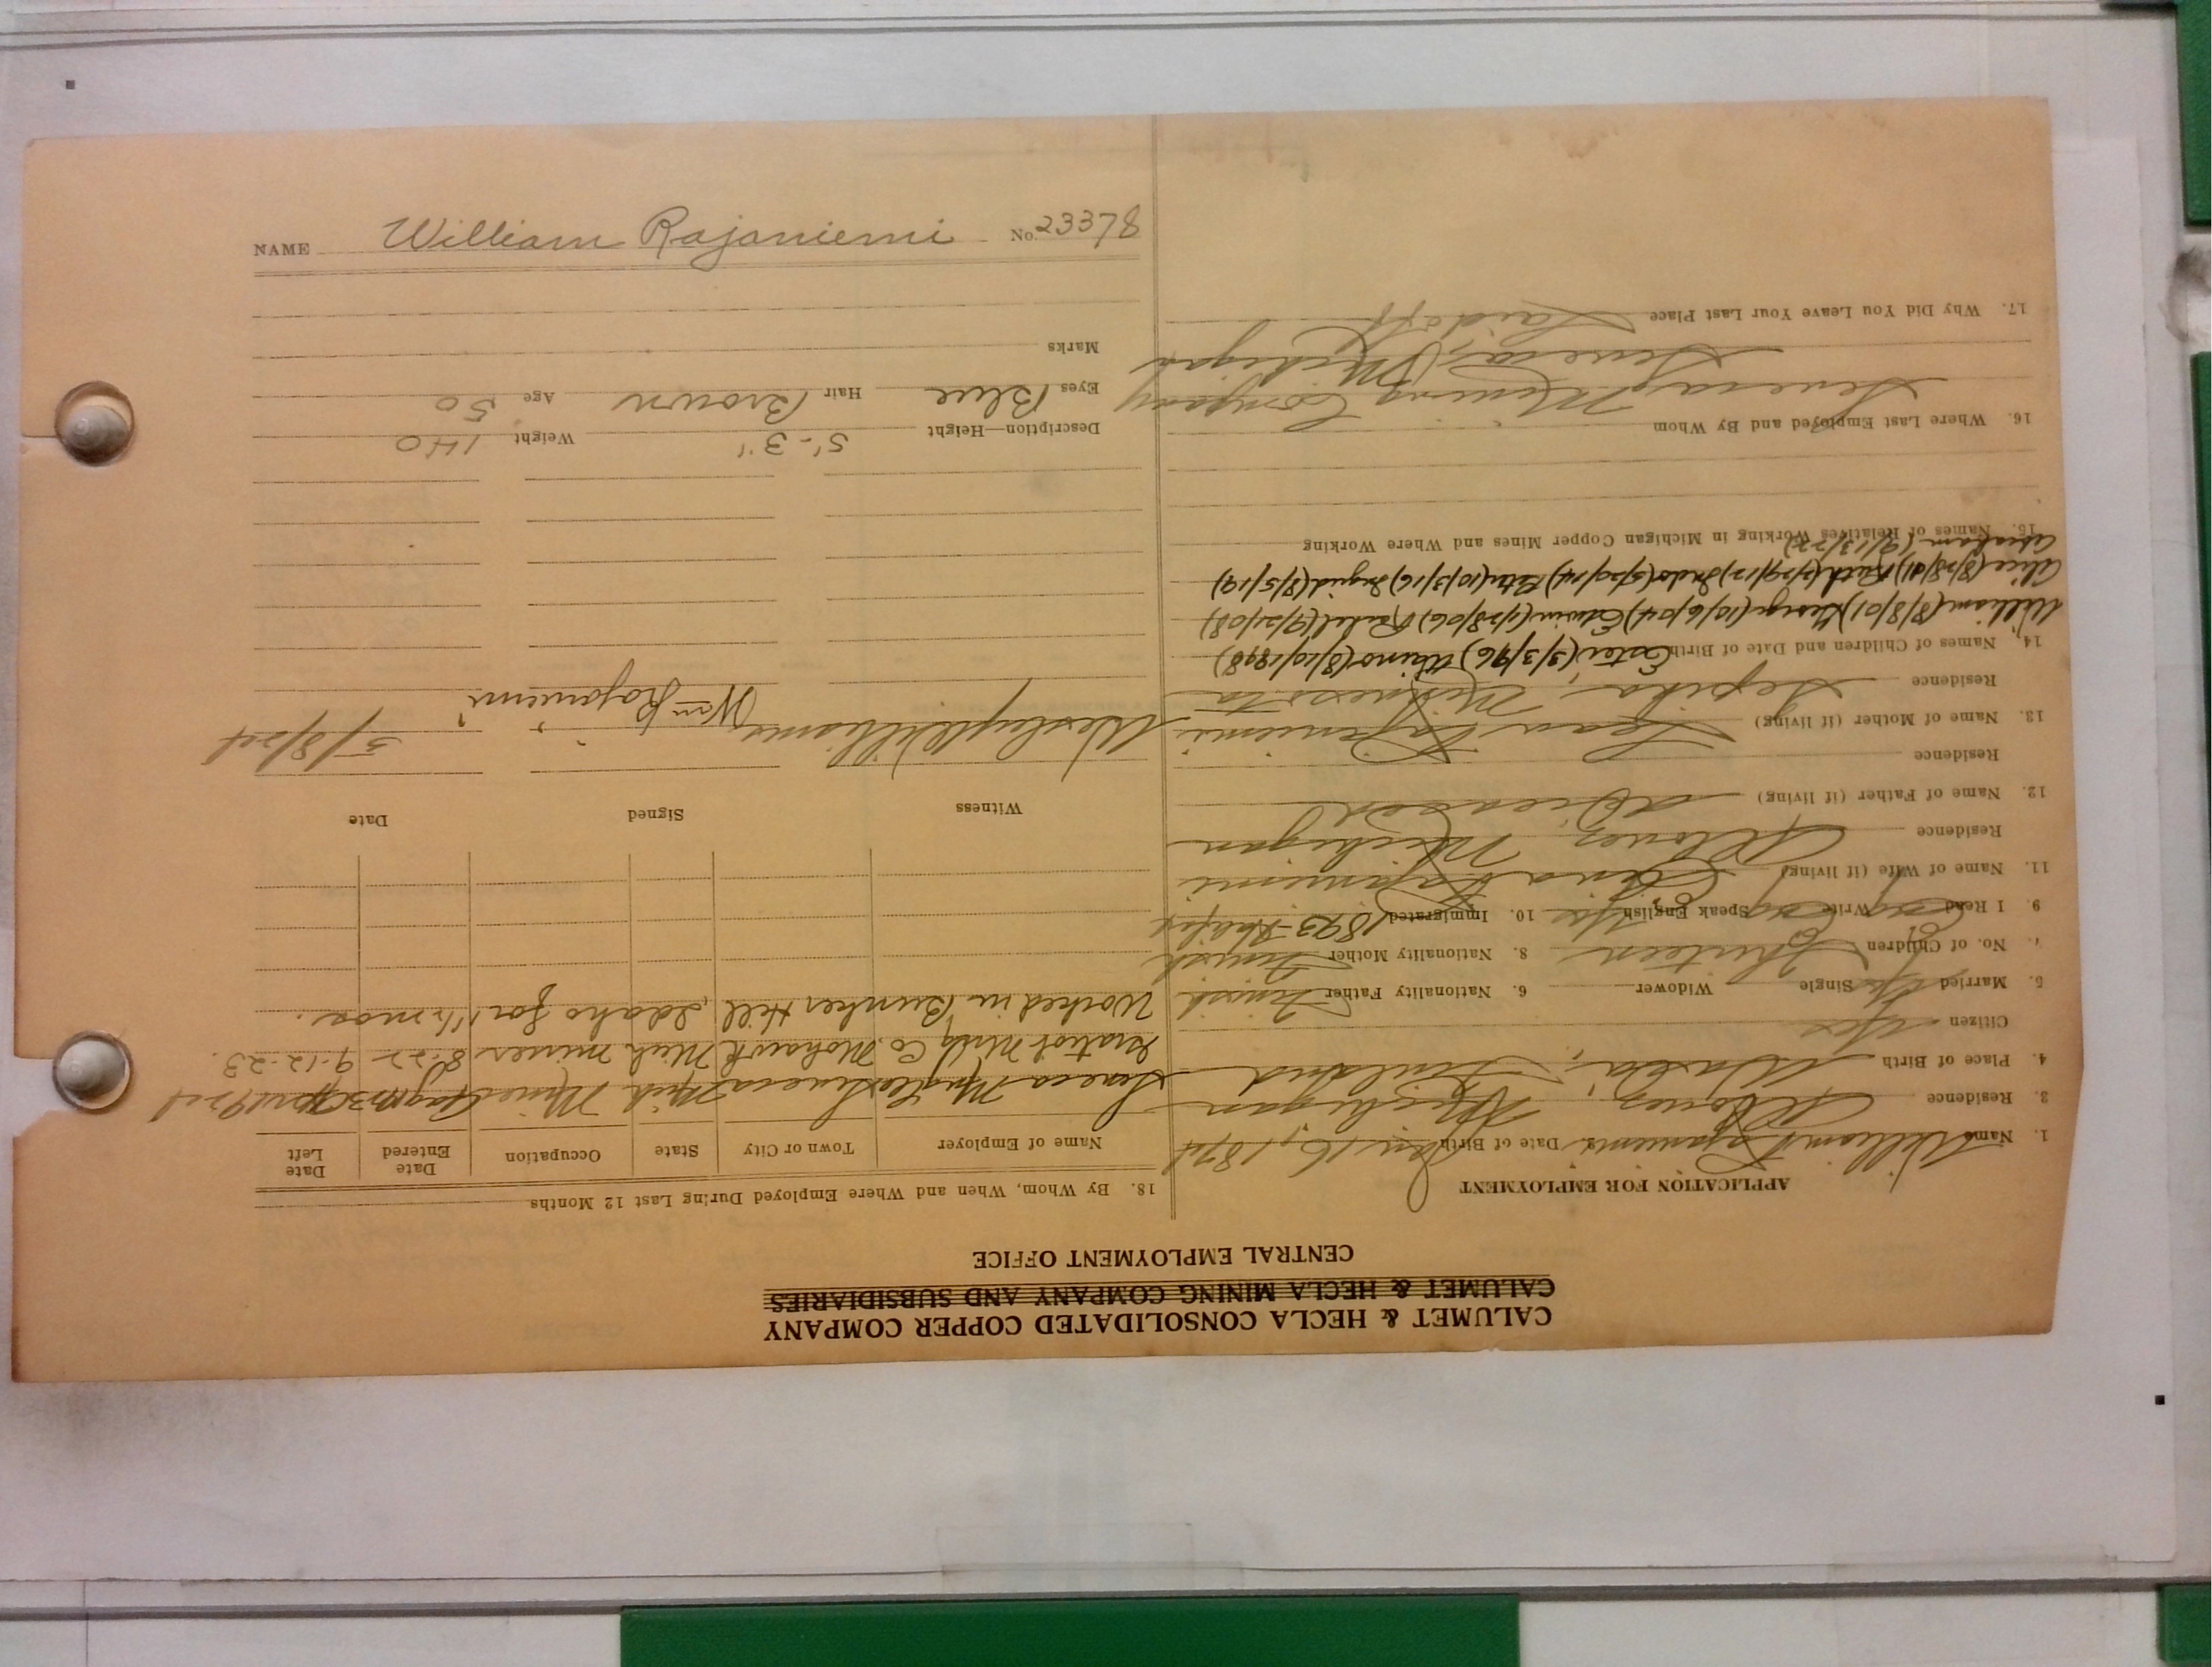 CALUMET & HECLA CONSOLIDATED COPPER COMPANY
CALUMET & HECLA MINING COMPANY AND SUBSIDIARIES
CENTRAL EMPLOYMENT OFFICE
APPLICATION FOR EMPLOYMENT
1. Name William Rajaniemi Date of Birth Jan 16, 1874
3. Residence Allouez, Michigan
4. Place of Birth Finland
Citizen Yes
5. Married Yes Single Widower 6. Nationality Father Finish
7. No. of Children Thirteen 8. Nationality Mother Finish
9. I Read Write Speak English Yes 10. Immigrated 1893
11. Name of Wife (if living) Rajaniemi
Residence Allouez, Michigan
12. Name of Father (if living) Deceased
Residence
13. Name of Mother (if living) Rajaniemi
Residence Minnesota
14. Names of Children and Date of Birth Ester (3/3/96) Waino (8/10/1898)
William (8/8/01) George (10/6/04) Edwin (1/28/06) Rachel (9/21/08)
Alice (8/28/01) Ruth (2/29/12) (5/29/14) (10/3/16) Ingrid (8/5/19)
(9/13/22)
15. Names of Relatives Working in Michigan Copper Mines and Where Working
16. Where Last Employed and By Whom
Seneca Mining Company
Seneca, Michigan
17. Why Did You Leave Your Last Place Laid off
18. By Whom, When and Where Employed During Last 12 Months
Name of Employer Town or City State Occupation Date Entered Date Left
Seneca Mng Co Seneca Mich Miner
Gratiot Mng Co. Mohawk Mich miner 8-22 9-12-23.
Worked in Bunker Hill, Idaho for 1 1/2 mos.
Witness Signed Date
Wesley Williams Wm Rajaniemi 5/8/24
Description—Height 5'-3" Weight 140
Eyes Blue Hair Brown Age 50
Marks
NAME William Rajaniemi No. 23378